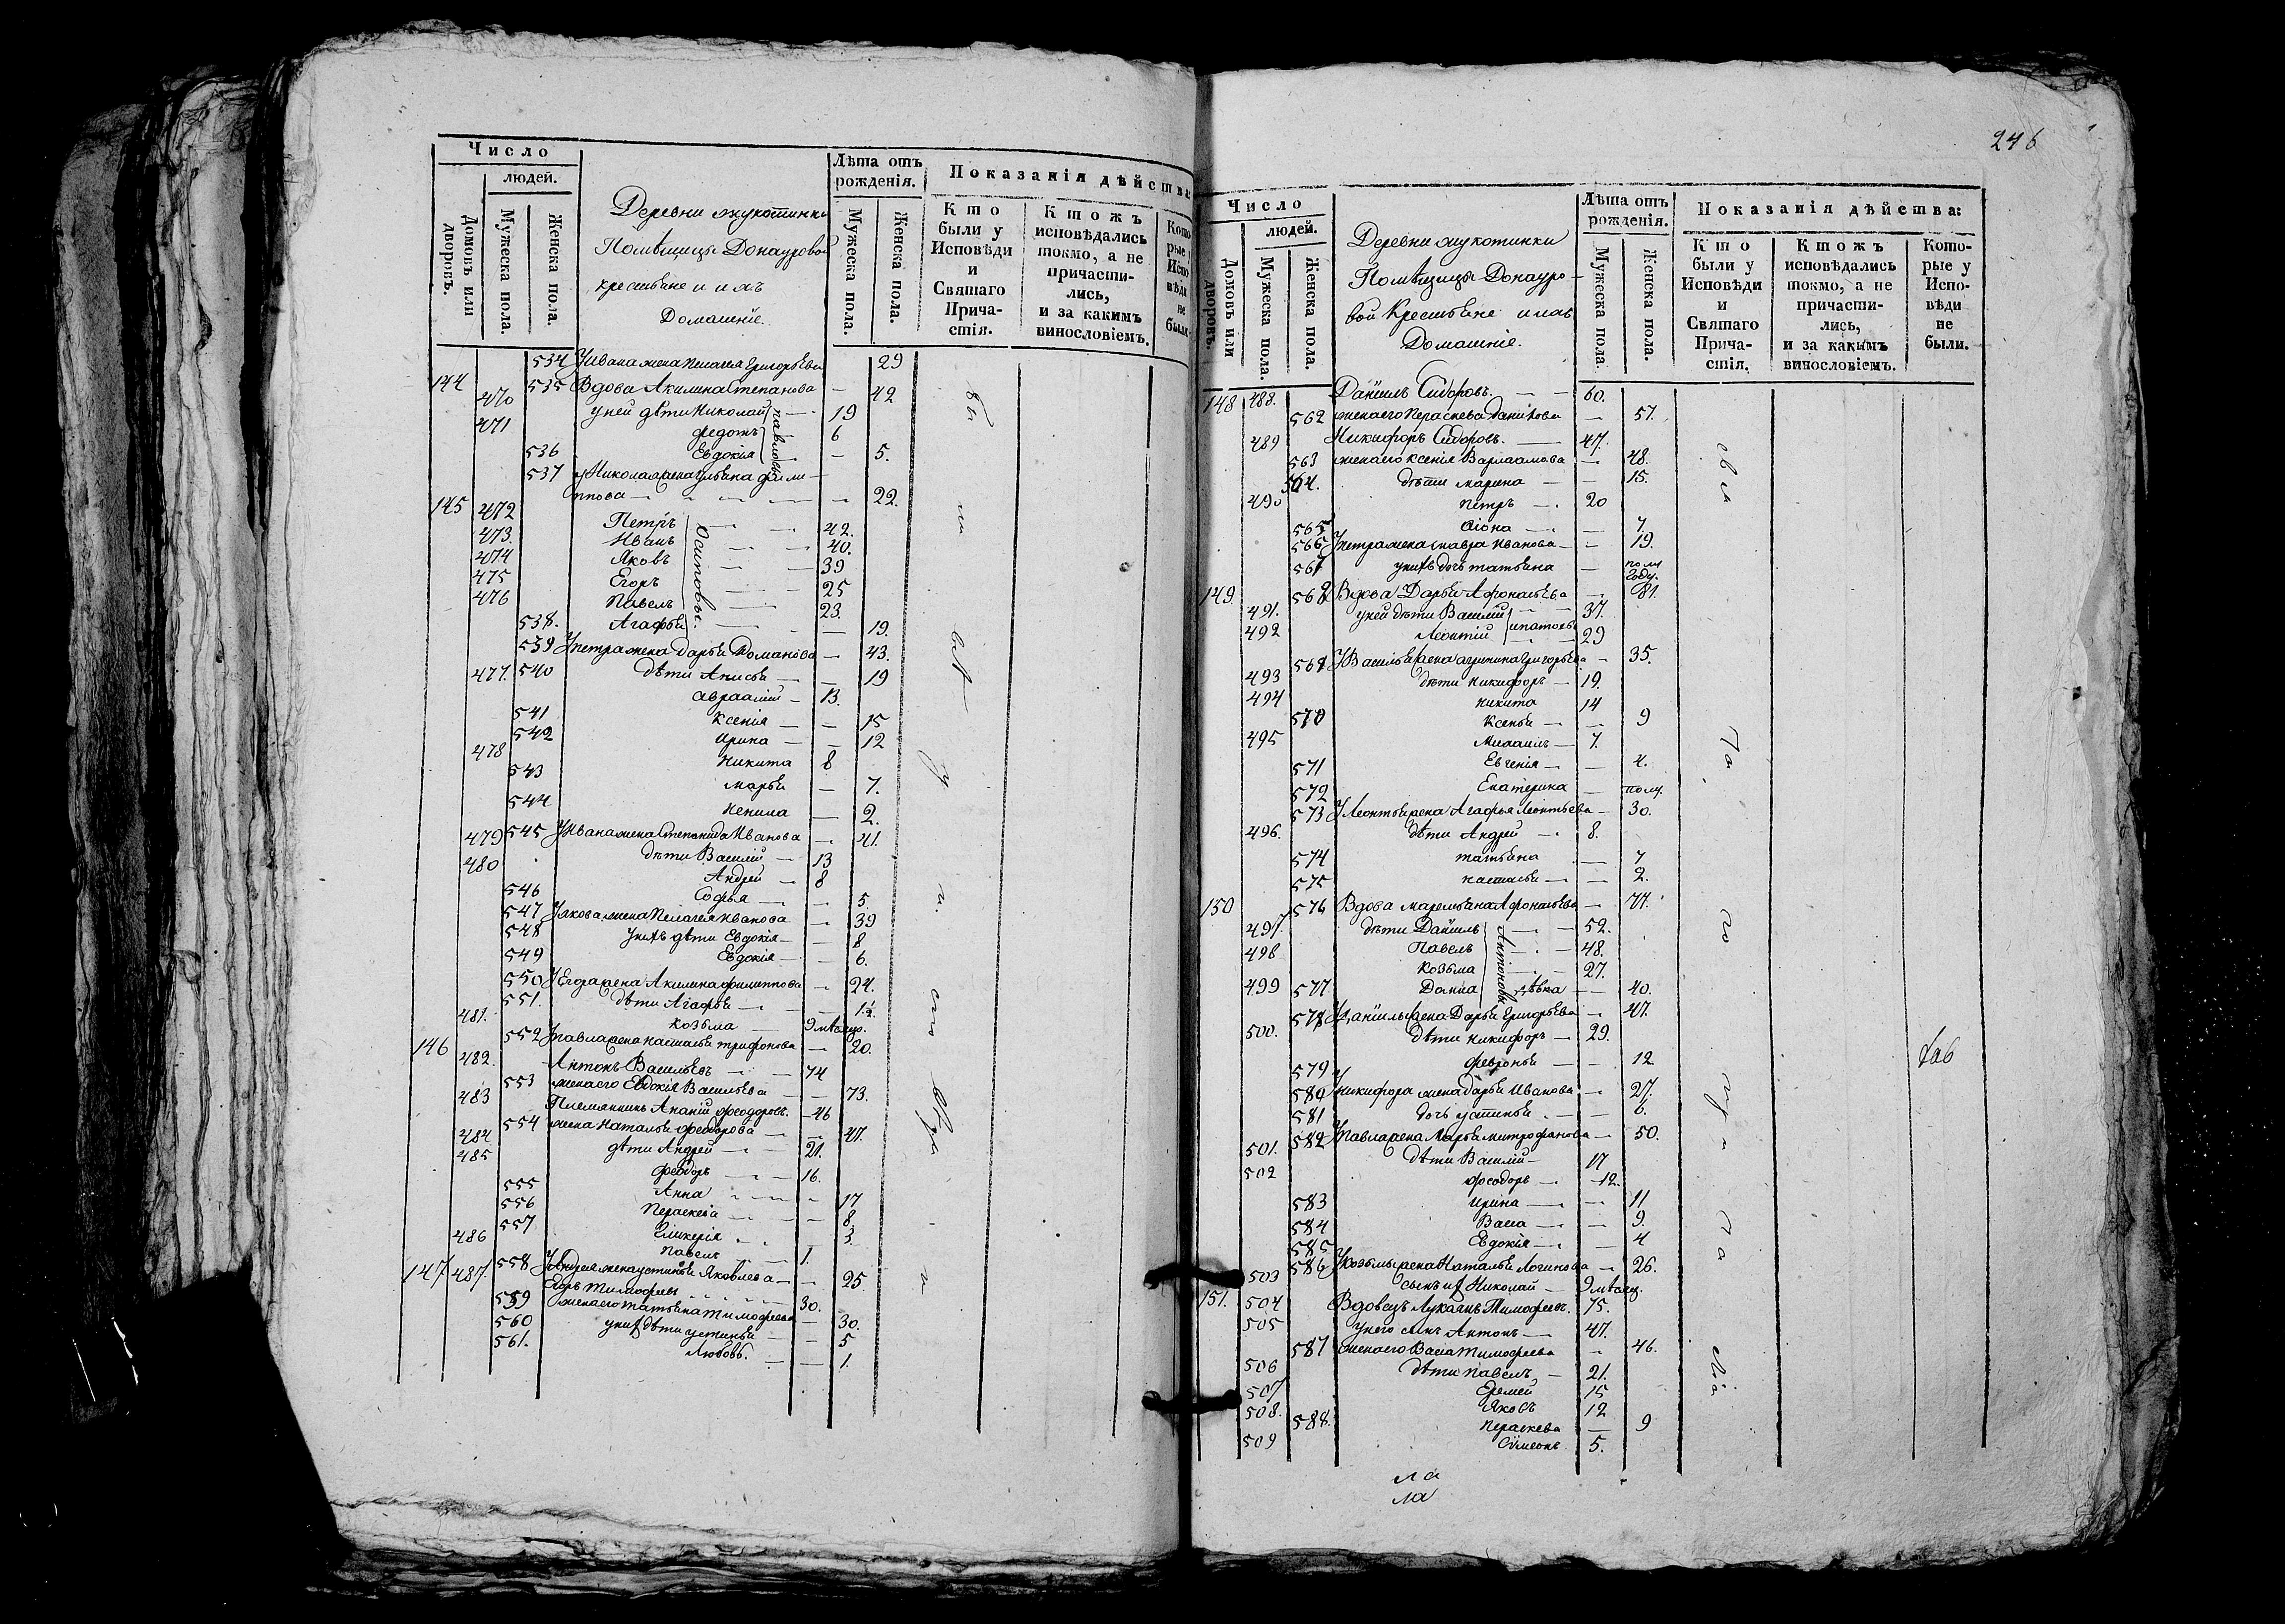 Число
людей.
Домовъ или дворовъ.
Мужеска пола.
Женска пола.
Деревни жукотинки
Помѣщицы Донауровой
крестьяне и ихъ
Домашніе.
Лѣта отъ
рожденія.
Мужеска пола.
Женска пола.
Показанія дѣйства
Кто
были у
Исповѣди
и
Святаго
Прича-
стія.
Ктожъ
исповѣдались
токмо, а не
причасти-
лись,
и за какимъ
винословіемъ.
Кото
рые у
Испо-
вѣди
не
были.
534 У Ивана жена Пелагея Григорьева 29
144 535 Вдова Акилина Степанова — 42
470 у ней дѣти Николай — 19
471 Федотъ — 6
Павловы
536 Евдокія — 5.
537 у Николая жена Ульяна Фили-
ппова — 22.
145 472 Петръ — 42.
473. Иванъ — 40.
474 Яковъ — 39
475 Егоръ — 25
476 Павелъ — 23.
Осиповы.
538. Агафья — 19.
539 У петра жена дарья Романова — 43.
477. 540 дѣти Анисья — 19
авраамій — 13.
541 Ксенія — 15
542 Ирина — 12
478 Никита 8
543 марья — 7.
544 Ненила — 2.
479 545 У Ивана жена Степанида Иванова — 41.
480 дѣти Василій — 13
Андрей — 8
546 Софья — 5
547 У якова жена Пелагея Иванова — 39
548 у нихъ дѣти Евдокія — 8
549 Евдокія — 6.
550 У Егора жена Акилина филиппова — 24.
551. дѣти Агафья — 1½.
481. козьма 9 мѣсяцо.
552 У павла жена настасья трифонова — 20.
146 482. Антонъ Васильевъ — 74
553 жена его Евдокія Васильева — 73.
483 Племянникъ Ананій феодоровъ. — 46
554 жена Наталья феодорова — 47.
484 дѣти Андрей — 21.
485 феодоръ — 16.
555 Анна — 17
556 Параскева — 8
557 Гликерія — 3.
486 Павелъ — 1.
558 У Андрея жена устинья Яковлева — 25
147 487. Егоръ Тимофеевъ 30.
559 жена его татьяна тимофеева — 30.
560 у нихъ дѣти устинья — 5
561. Любовь. — 1.
бы
ли
вл
у
и.
246
Число
людей.
Домовъ или дворовъ.
Мужеска пола.
Женска пола.
Деревни жукотинки
Помѣщицы Донауро-
вой Крестьяне и ихъ
Домашніе.
Лѣта отъ
рожденія.
Мужеска пола.
Женска пола.
Показанія дѣйства:
Кто
были у
Исповѣди
и
Святаго
Прича-
стія.
Ктожъ
исповѣдались
токмо, а не
причасти-
лись,
и за какимъ
винословіемъ.
Кото-
рые у
Испо-
вѣди
не
были.
148 488. Даніилъ Сидоровъ. — 60.
562 жена его Параскева Данилова — 57.
489 Никифоръ Сидоровъ. — 47.
563 жена его ксенія Варлаамова — 48.
564. дѣти марина — 15.
490 петръ — 20
565 — 7
566 У петра жена мавра Иванова — 19.
567 у нихъ дочь татьяна — полу
году.
149. 568 Вдова Дарья Афонасьева — 81.
491. у ней дѣти Василій 37.
492 Леонтій 29
ипатовы
569 У Василья жена агрипина Григорьева — 35.
493 дѣти никифоръ — 19.
494 никита 14
570 Ксенья — 9
495 Михаилъ — 7.
571 Евгенія — 4.
572 Екатерина — полу.
573 У Леонтья жена Агафья Леонтьева — 30.
496. дѣти Андрей — 8.
574 татьяна — 7
575 настасья — 2.
150 576 Вдова маремьяна Афонасьева — 77.
497. дѣти Даніилъ — 52.
498 Павелъ — 48.
499 Козьма — 27.
Антоновы
577 Дарія дѣвка — 40.
578 У даніилы жена Дарья Григорьева — 47.
500. дѣти никифоръ — 29.
579 февронья — 12
580 У никифора жена дарья Иванова — 27.
581 дочь устинья. — 6.
582 У павла жена Марья митрофанова — 50.
501. дѣти Василій — 17
502 феодоръ — 12.
583 ирина — 11
584 Васса — 9.
585 Евдокія — 4
586 У козьмы жена Наталья Логинова — 26.
503 сынъ их Николай — 9 мѣсяц.
151. 504 Вдовецъ Лукіанъ Тимофеевъ. 75.
505 у него сынъ Антонъ — 47.
587 жена его Васса Тимофеева — 46.
506 дѣти павелъ — 21.
507 Еремей 15
508. Яковъ 12
588. параскева — 9
509 Симеонъ 5.
то
пу
па
ла
ла